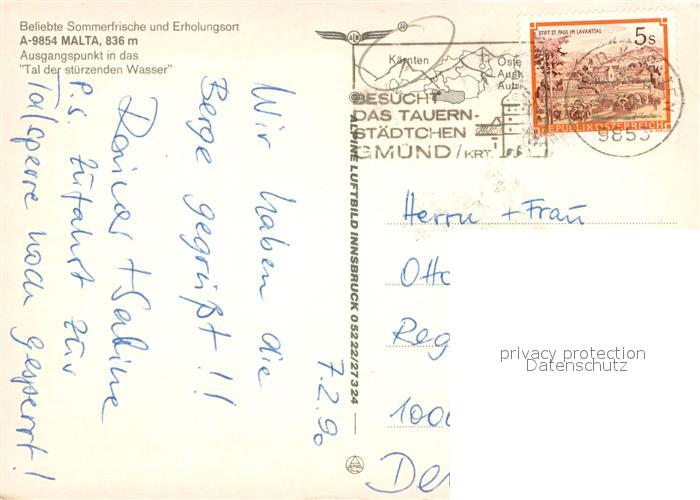 Beliebte Sommerfrische und Erholungsort
A-9854 MALTA, 836 m
Ausgangspunkt in das
"Tal der stürzenden Wasser"
Wir haben die
Berge gegrüßt!!
Reiner + Sabine
P.S. Zufahrt zur
Talsperre noch gesperrt!
7.2.90
ALPINE LUFTBILD INNSBRUCK 05222/27324
Kärnten
BESUCHT
DAS TAUERN-
STÄDTCHEN
GMÜND/KRT.
STIFT ST. PAUL IM LAVANTTAL
5s
REPUBLIK ÖSTERREICH
9853
Herrn + Frau
Otto
Reg
100
De
privacy protection
Datenschutz